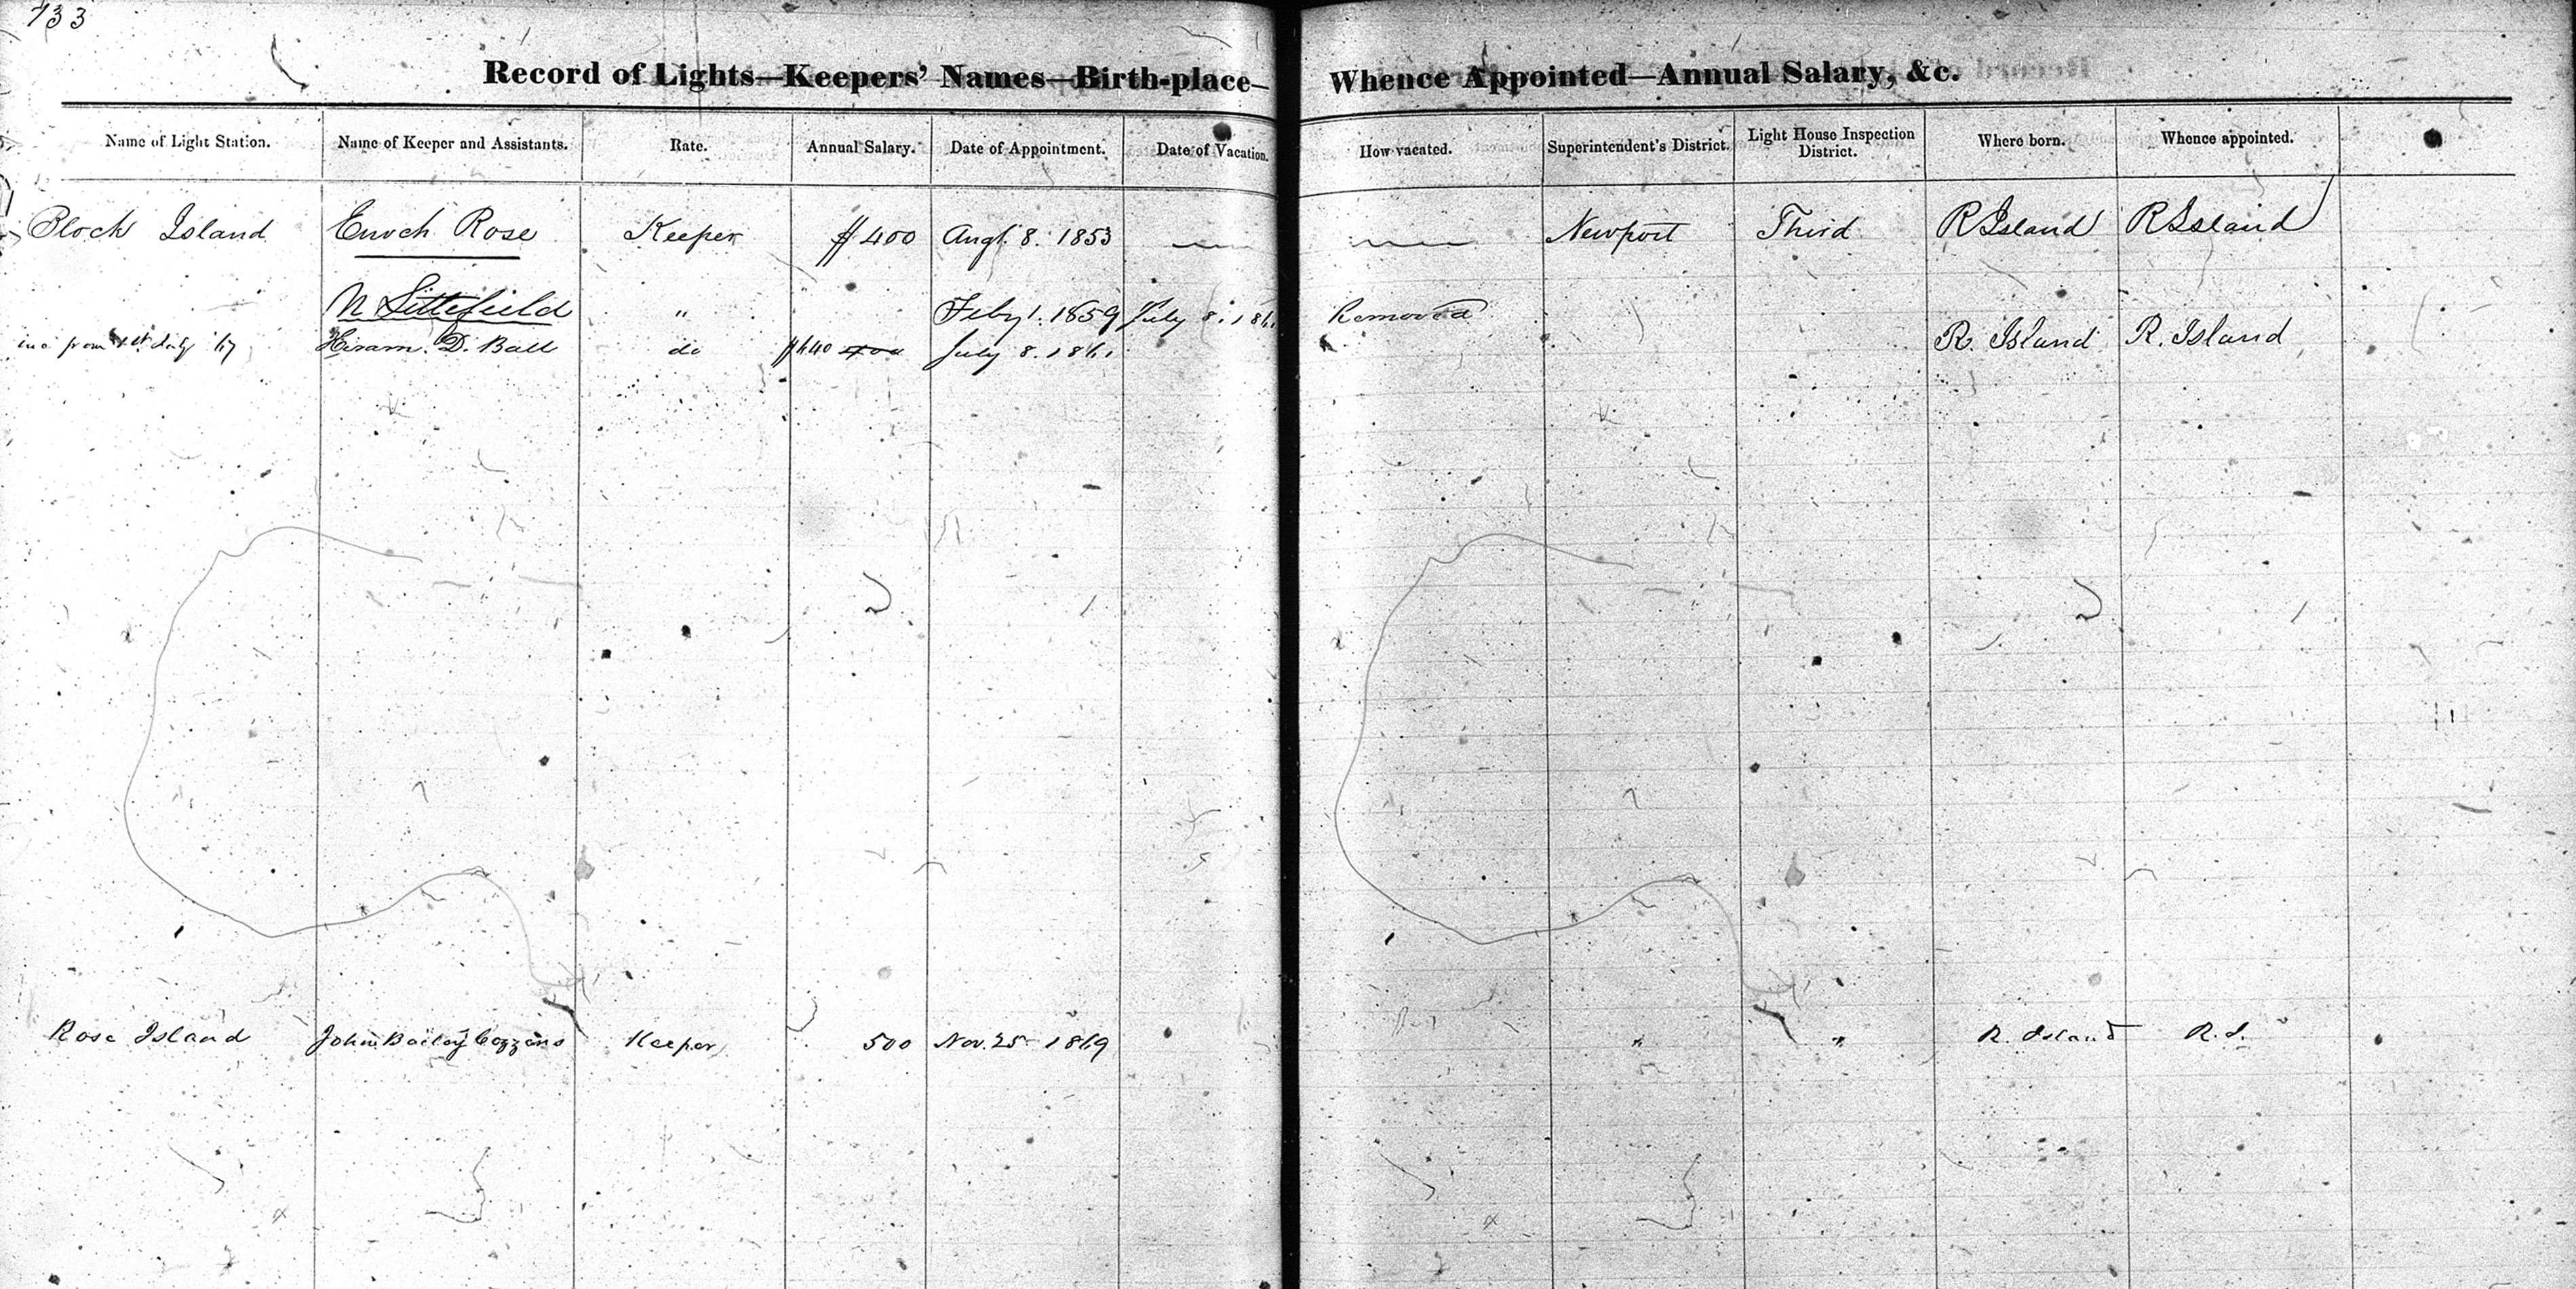 133
Record of Lights—Keepers' Names—Birth-place— Whence Appointed—Annual Salary, &c.
Name of Light Station. Name of Keeper and Assistants. Rate. Annual Salary. Date of Appointment. Date of Vacation. How vacated. Superintendent's District. Light House Inspection District. Where born. Whence appointed.
Block Island Enoch Rose Keeper $400 Augt. 8. 1853 Newport Third R Island R Island
N Littlefield " Feby 1. 1859 July 8. 1861 Removed
inc from 1st July 67 Hiram. D. Ball do 400 July 8. 1861 R. Island R. Island
Rose Island John Bailey Cozzens Keeper 500 Nov. 25 1869 " " R. Island R. I.